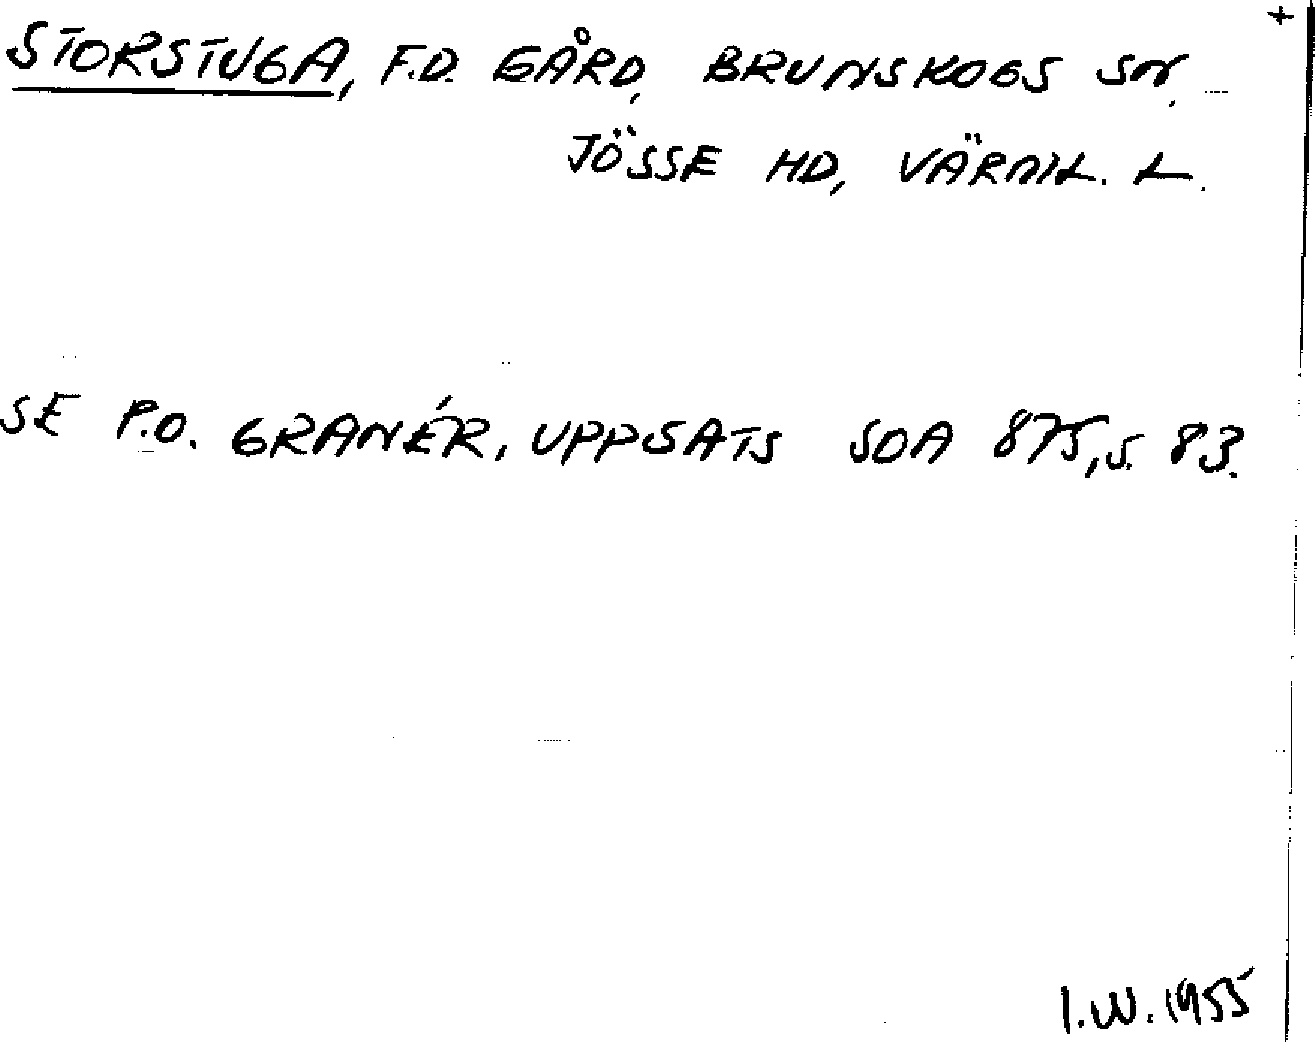 +
STORSTUGA, F.D. GÅRD, BRUNSKOGS SN,
JÖSSE HD, VÄRML. L.
SE P.O. GRANÉR, UPPSATS SOA 875, S. 83.
I.W. 1955